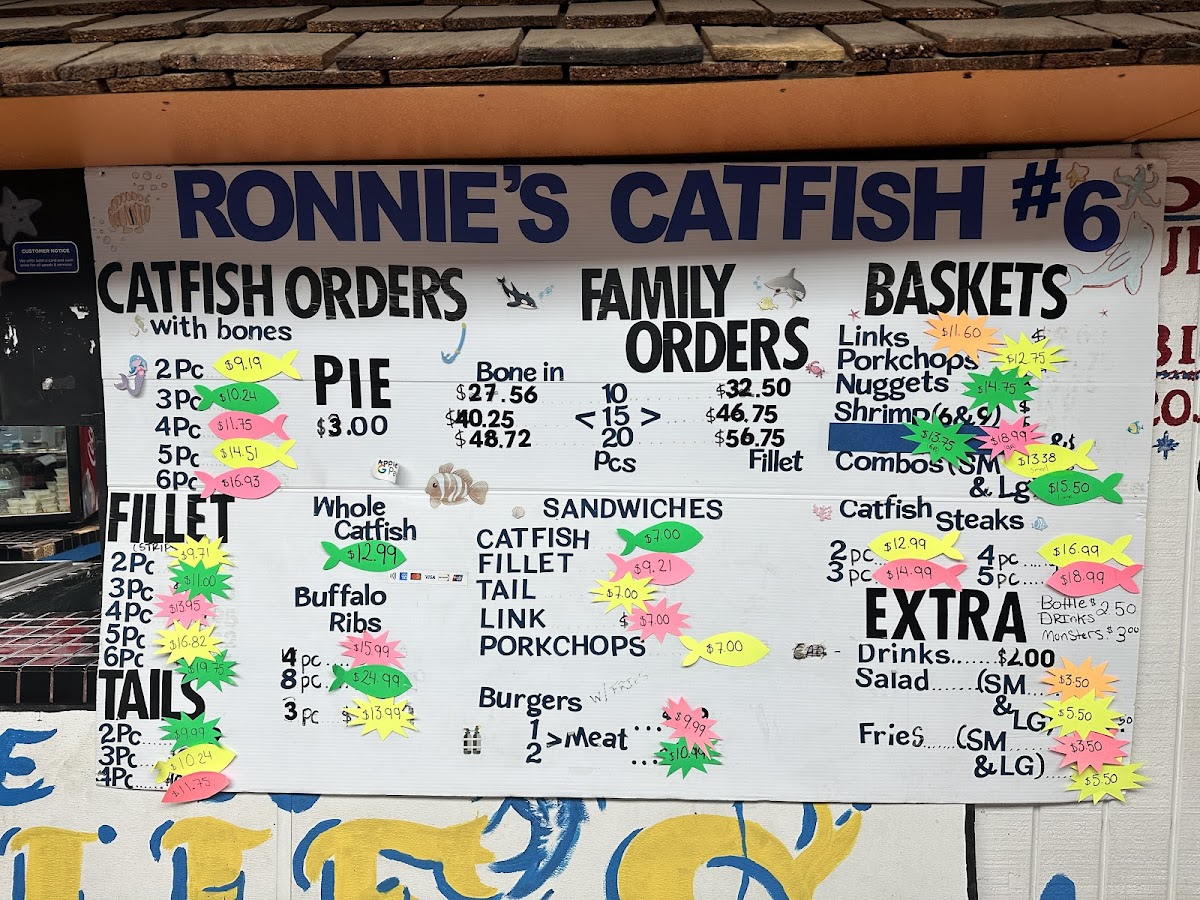 RONNIE'S CATFISH #6
CUSTOMER NOTICE
CATFISH ORDERS
with bones
2 Pc $9.19
3 Pc $10.24
4 Pc $11.75
5 Pc $14.51
6 Pc $16.93
PIE
$3.00
FAMILY
ORDERS
Bone in
$27.56 10 $32.50
$40.25 < 15 > $46.75
$48.72 20 $56.75
Pcs Fillet
BASKETS
Links $11.60
Porkchops $12.75
Nuggets $14.75
Shrimp (6&9) $
$13.75 $18.99
Combos (SM $13.38
& Lg $15.50
Apple
G Pay
FILLET
(STRIP
2 Pc $9.71
3 Pc $11.00
4 Pc $13.95
5 Pc $16.82
6 Pc $19.75
TAILS
2 Pc $9.99
3 Pc $10.24
4 Pc $11.75
Whole
Catfish
$12.99
VISA
Buffalo
Ribs
4 pc $15.99
8 pc $24.99
3 pc $13.99
SANDWICHES
CATFISH $7.00
FILLET $9.21
TAIL $7.00
LINK $7.00
PORKCHOPS $7.00
Burgers
1 $9.99
> Meat
2 $10.99
Catfish Steaks
2 pc $12.99 4 pc $16.99
3 pc $14.99 5 pc $18.99
EXTRA
Bottle $2.50
DRINKS
Monsters $3.00
Drinks $2.00
Salad (SM $3.50
& LG $5.50
Fries (SM $3.50
& LG) $5.50